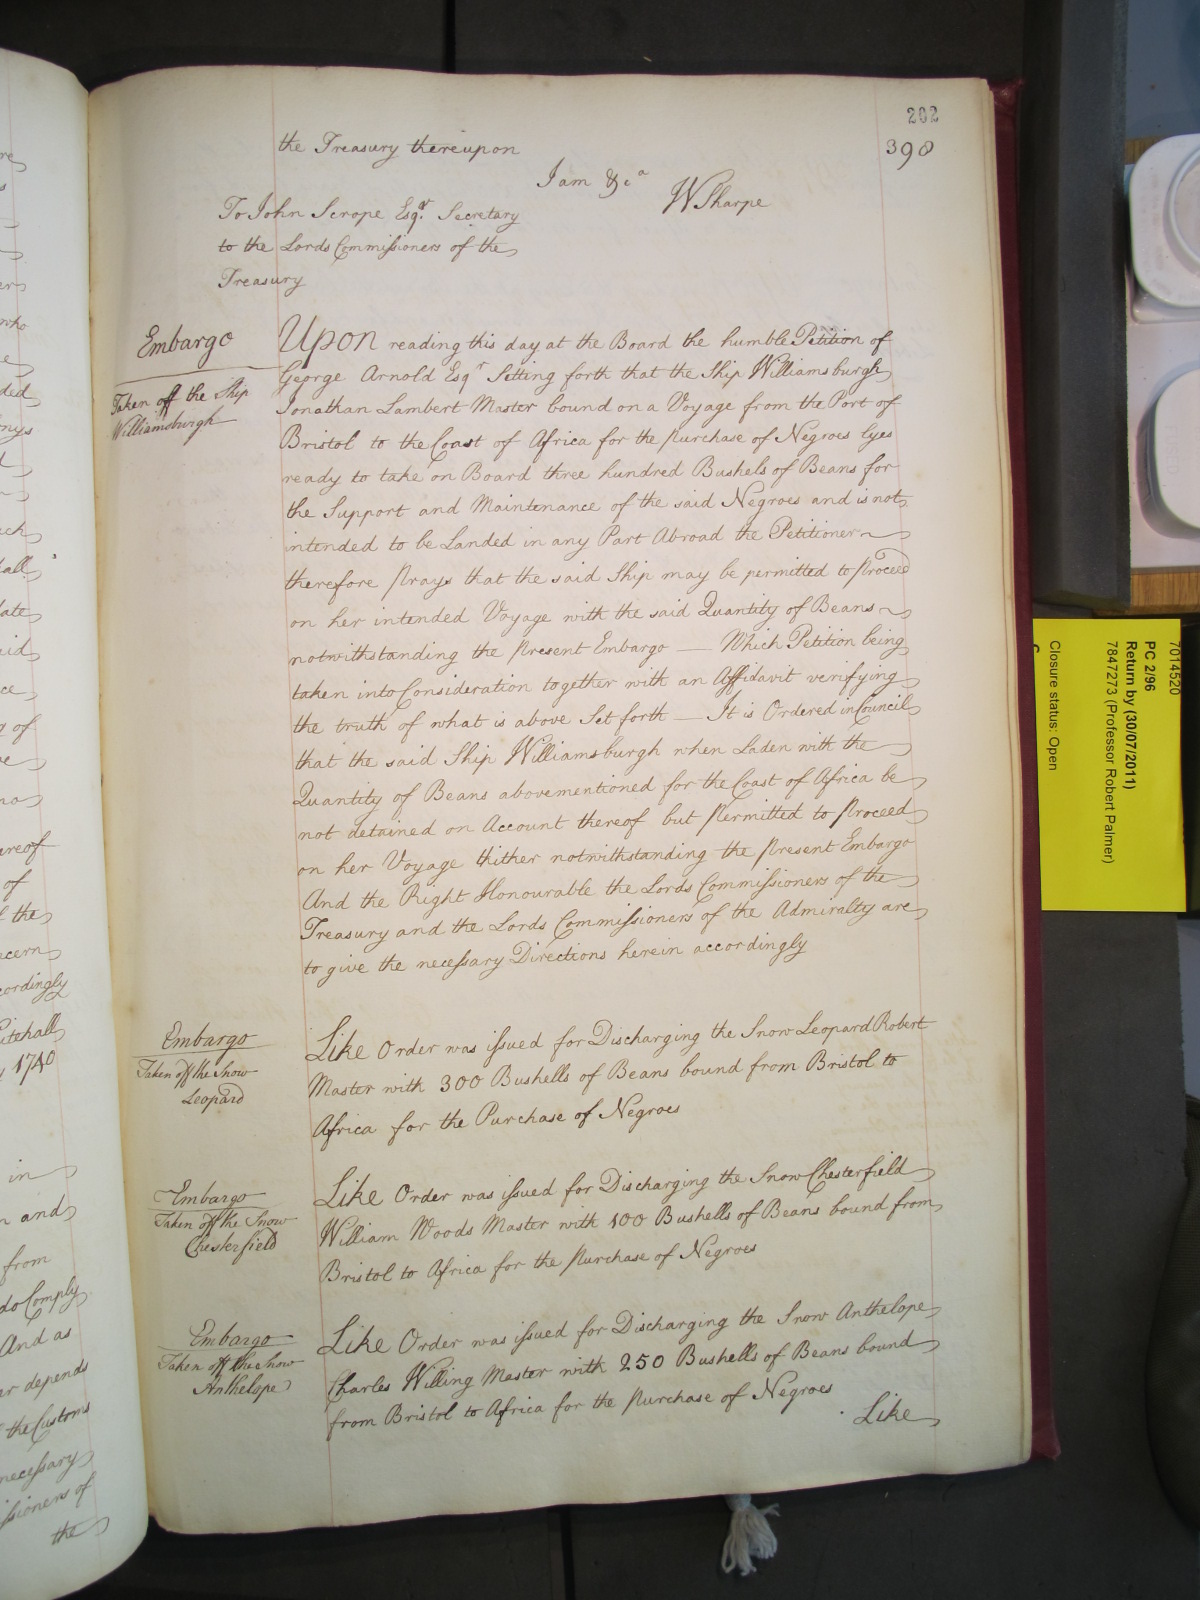 202
398
the Treasury thereupon
I am &ca
WSharpe
To John Scrope Esqr. Secretary
to the Lords Commissioners of the
Treasury
Embargo
Taken off the Ship
Williamsburgh
Upon reading this day at the Board the humble Petition of
George Arnold Esqr Setting forth that the Ship Williamsburgh
Jonathan Lambert Master bound on a Voyage from the Port of
Bristol to the Coast of Africa for the purchase of Negroes lyes
ready to take on Board three hundred Bushels of Beans for
the Support and Maintenance of the said Negroes and is not
intended to be Landed in any Part Abroad the Petitioner
therefore Prays that the said Ship may be permitted to proceed
on her intended Voyage with the said Quantity of Beans
notwithstanding the present Embargo — Which Petition being
taken into Consideration together with an Affidavit verifying
the truth of what is above Set forth — It is Ordered in Council
that the said Ship Williamsburgh when Laden with the
Quantity of Beans abovementioned for the Coast of Africa be
not detained on Account thereof but Permitted to Proceed
on her Voyage thither notwithstanding the present Embargo
And the Right Honourable the Lords Commissioners of the
Treasury and the Lords Commissioners of the Admiralty are
to give the necessary Directions herein accordingly
Embargo
Taken off the Snow
Leopard
Like Order was issued for Discharging the Snow Leopard Robert
Master with 300 Bushells of Beans bound from Bristol to
Africa for the Purchase of Negroes
Embargo
Taken off the Snow
Chesterfield
Like Order was issued for Discharging the Snow Chesterfield
William Woods Master with 100 Bushells of Beans bound from
Bristol to Africa for the purchase of Negroes
Embargo
Taken off the Snow
Anthelope
Like Order was issued for Discharging the Snow Anthelope
Charles Willing Master with 250 Bushells of Beans bound
from Bristol to Africa for the purchase of Negroes
Like
7014520
PC 2/96
Return by (30/07/2011)
7847273 (Professor Robert Palmer)
Closure status: Open
of
1740
in
and
from
do Comply
And as
depends
the Customs
necessary
of
the